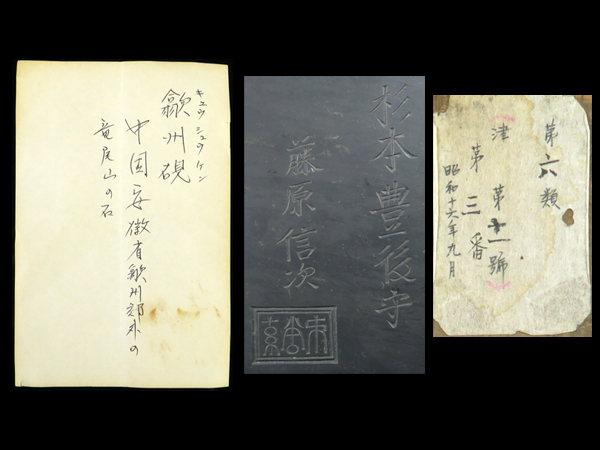 キュウ シュウ ケン
歙州硯
中国安徽省歙州郊外の
竜尾山の石
杉本豊後守
藤原信次
第六類
津 第十一號
第三番
昭和十六年九月